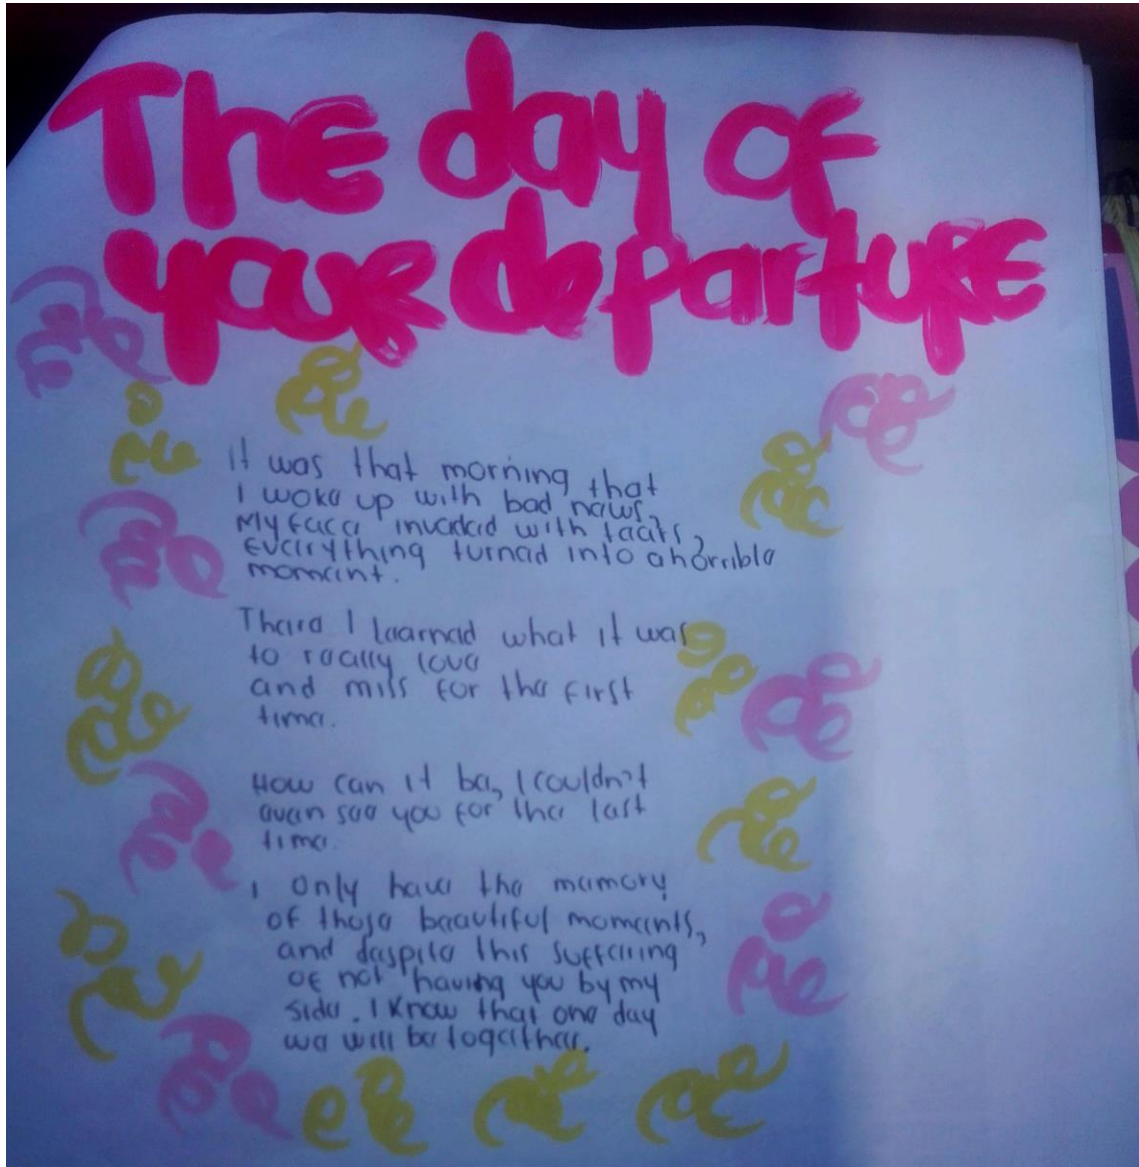 The day of
your departure
It was that morning that
I woke up with bad news,
My face invaded with tears,
Everything turned into a horrible
moment.
There I learned what it was
to really love
and miss for the first
time.
How can it be, I couldn't
even see you for the last
time.
I only have the memory
of those beautiful moments,
and despite this suffering
of not having you by my
side. I know that one day
we will be together.